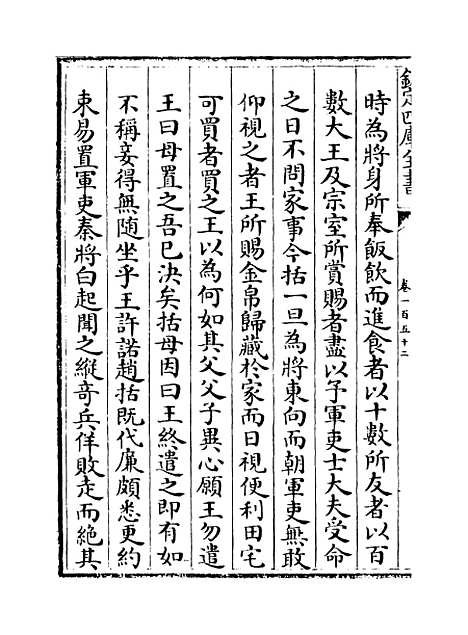 欽定四庫全書
卷一百五十二
時為將身所奉飯飲而進食者以十數所友者以百
數大王及宗室所賞賜者盡以予軍吏士大夫受命
之日不問家事今括一旦為將東向而朝軍吏無敢
仰視之者王所賜金帛歸藏於家而日視便利田宅
可買者買之王以為何如其父父子異心願王勿遣
王曰母置之吾已決矣括母因曰王終遣之即有如
不稱妾得無隨坐乎王許諾趙括既代廉頗悉更約
束易置軍吏秦將白起聞之縱奇兵佯敗走而絕其